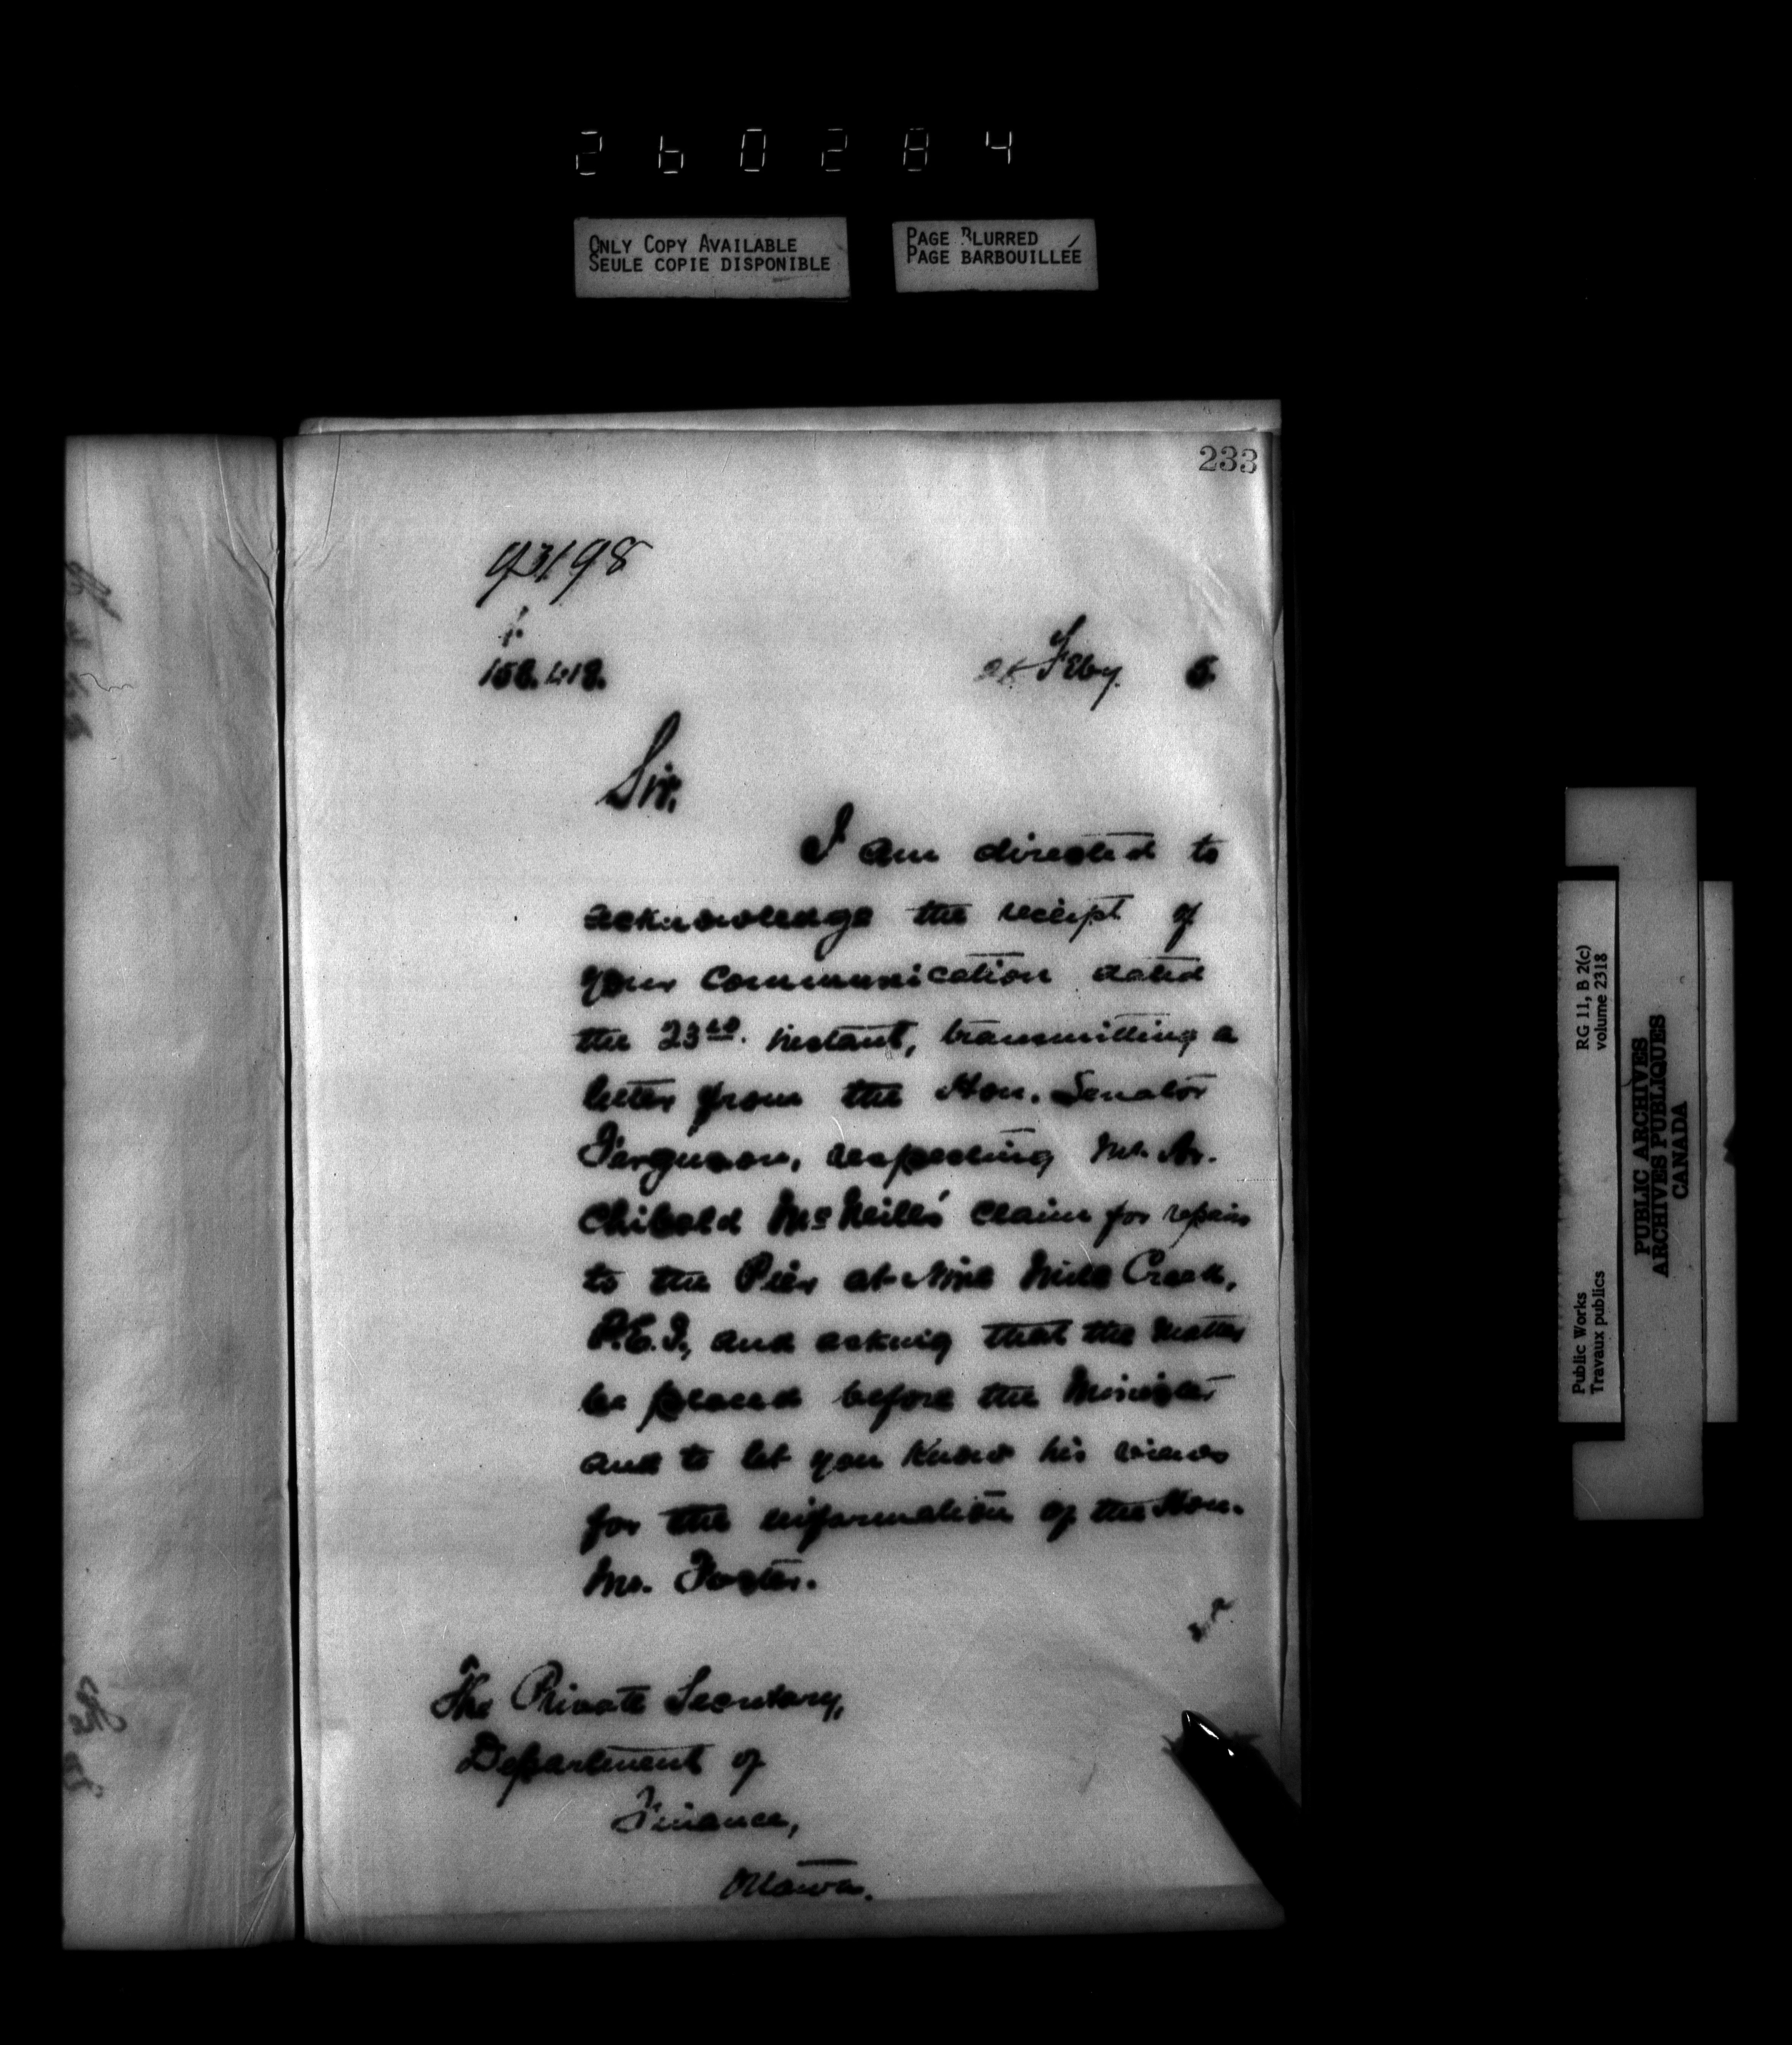 2 6 0 2 8 4
ONLY COPY AVAILABLE
SEULE COPIE DISPONIBLE
PAGE BLURRED
PAGE BARBOUILLÉE
233
93198
158.418.
Feby. 5
Sir,
I am directed to
acknowledge the receipt of
your communication dated
the 23rd. instant, transmitting a
letter from the Hon. Senator
Ferguson, respecting Mr. Ar-
chibald McNeill's claim for repairs
to the Pier at Nine Mile Creek,
P.E.I., and asking that the matter
be placed before the Minister
and to let you know his views
for the information of the Hon.
Mr. Foster.
The Private Secretary,
Department of
Finance,
Ottawa.
Public Works
Travaux publics
RG 11, B 2(c)
volume 2318
PUBLIC ARCHIVES
ARCHIVES PUBLIQUES
CANADA